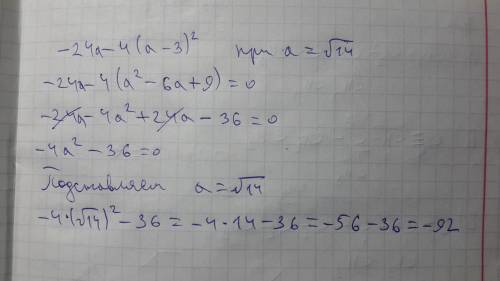 -24a-4(a-3)² при a=√14
-24a-4(a²-6a+9)=0
-24a-4a²+24a-36=0
-4a²-36=0
Подставляем a=√14
-4·(√14)²-36=-4·14-36=-56-36=-92